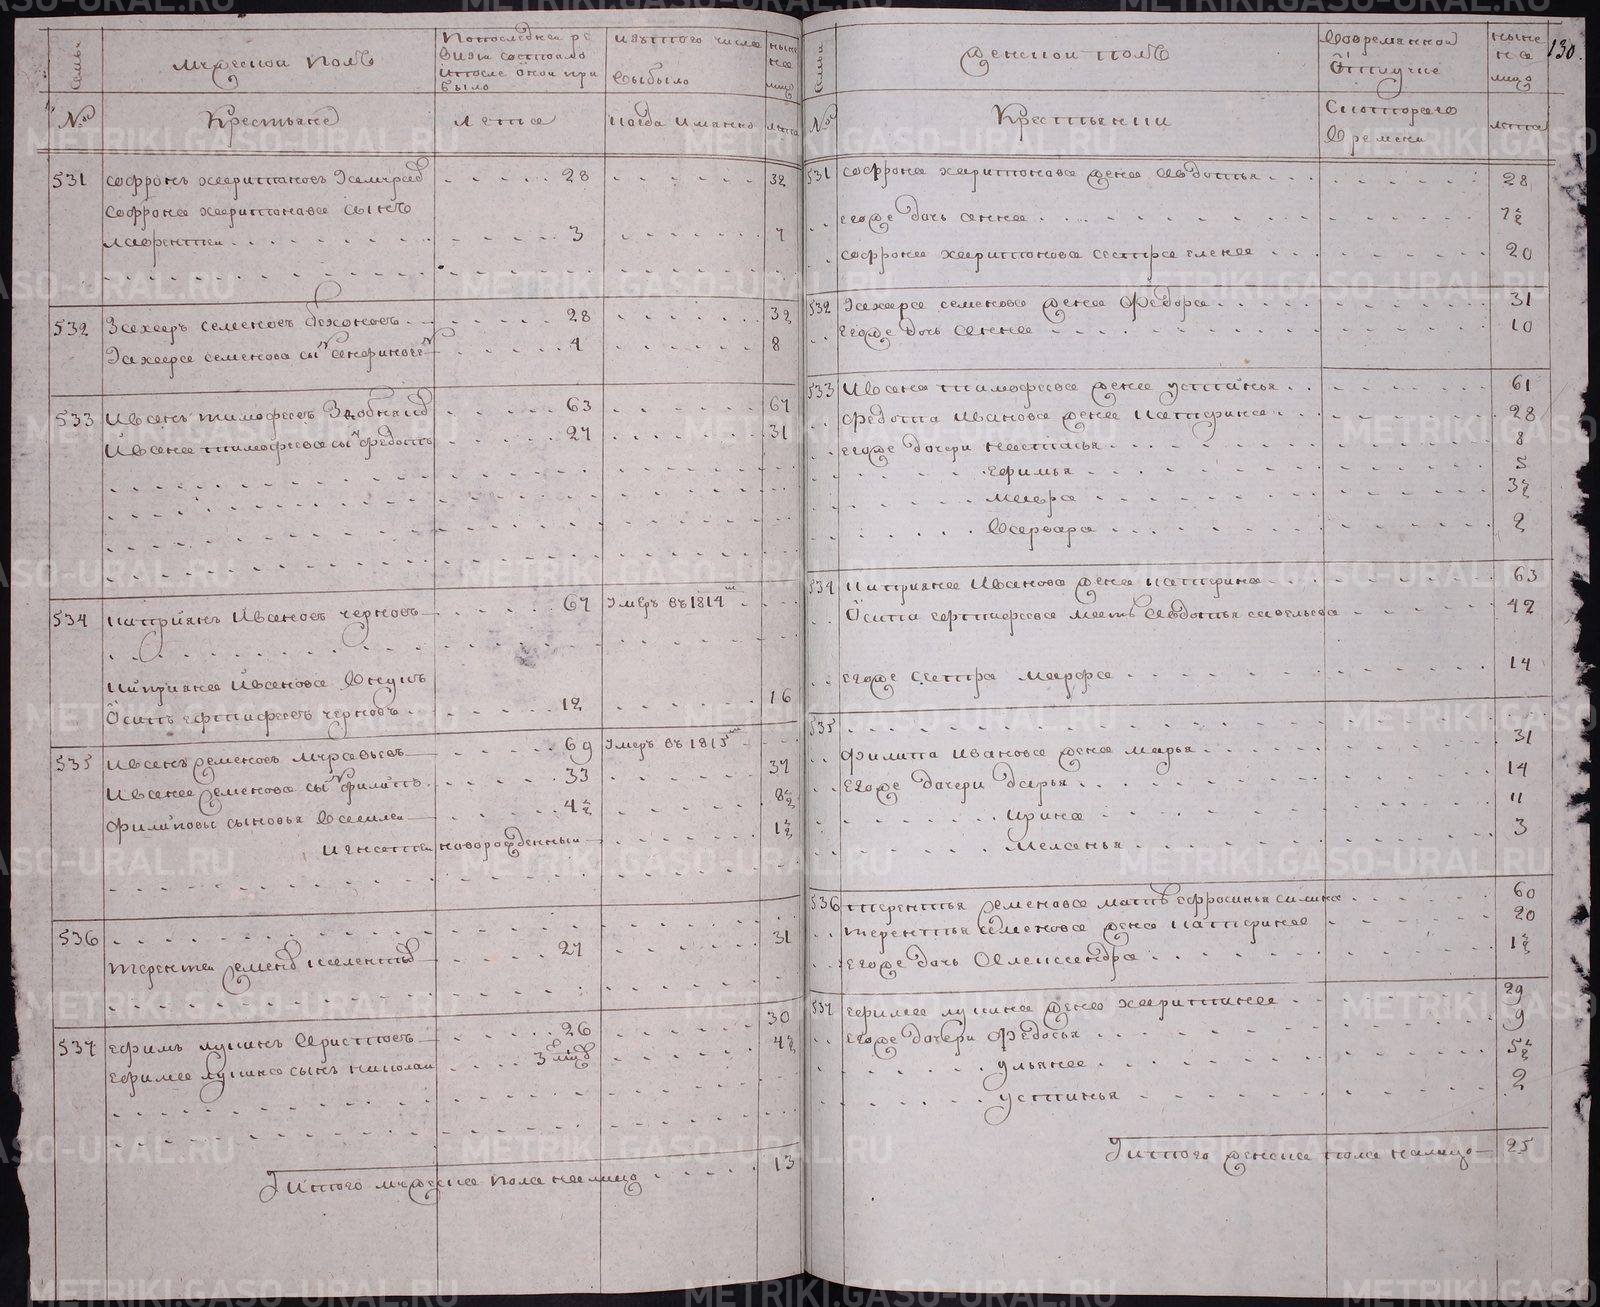 семьи
мужеской полъ
По последней ре
визи состояло
и после оной при
было
изътого числа
выбыло
ныне
на
лицо
№
Крестьяне
лета
когда имянно
лета
531
софронъ харитоновъ
28
32
софрона харитонова сынъ
лаврентеи
3
7
532
Захаръ семеновъ
28
32
Захара семенова сынъ
4
8
533
Иванъ тимофеевъ
63
67
Ивана тимофеева сынъ федотъ
27
31
534
киприянъ Ивановъ черновъ
67
умеръ въ 1814м
киприяна Иванова внукъ
Осипъ ефтифеевъ черновъ
12
16
535
Иванъ семеновъ муравьевъ
69
умеръ въ 1815м
Ивана семенова сынъ филипъ
33
37
филиповы сыновья василеи
4½
8½
игнатеи новорожденный
1½
536
терентеи семеновъ
27
31
537
ефимъ лукинъ Аристовъ
26
30
ефима лукина сынъ николаи
4½
Итого мужеска пола налицо
13
семьи
женской полъ
вовремянной
отлучке
ныне
на
лицо
130.
№
Крестьянки
скотораго
времени
лета
531
софрона харитонова жена авдотья
28
егоже дочь анна
7½
софрона харитонова сестра елена
20
532
Захара семенова жена федора
31
егоже дочь анна
10
533
Ивана тимофеева жена устинья
61
федота Иванова жена катерина
28
егоже дочери настасья
8
ефимья
5
мавра
3½
варвара
2
534
киприяна Иванова жена катерина
63
Осипа ефтифеева мать авдотья савельева
42
егоже сестра марфа
14
535
филипа Иванова жена марья
31
егоже дочери дарья
14
ирина
11
маланья
3
536
терентья семенова мать ефросинья силина
60
терентья семенова жена катерина
20
егоже дочь Александра
1½
537
ефима лукина жена харитина
29
егоже дочери федосья
9
ульяна
5½
устинья
2
Итого женска пола налицо
25
METRIKI.GASO-URAL.RU